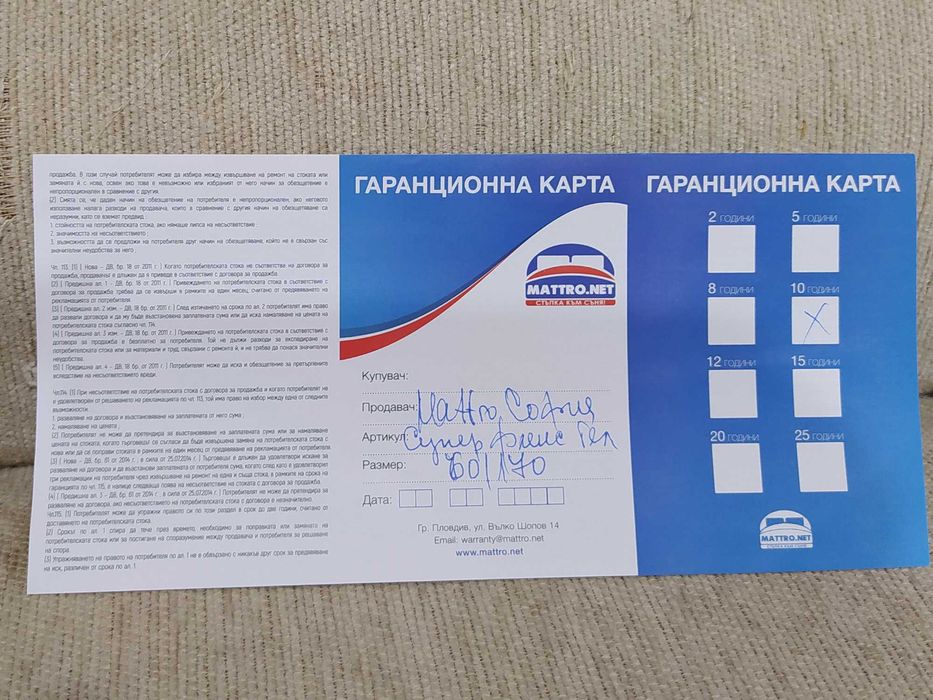 продажба. В този случай потребителят може да избира между извършване на ремонт на стоката или
замяната ѝ с нова, освен ако това е невъзможно или избраният от него начин за обезщетение е
непропорционален в сравнение с другия.
(2) Смята се, че даден начин за обезщетяване на потребителя е непропорционален, ако неговото
използване налага разходи на продавача, които в сравнение с другия начин на обезщетяване са
неразумни, като се вземат предвид :
1. стойността на потребителската стока, ако нямаше липса на несъответствие ;
2. значимостта на несъответствието ;
3. възможността да се предложи на потребителя друг начин на обезщетяване, който не е свързан със
значителни неудобства за него ;
Чл. 113. (1) ( Нова – ДВ, бр. 18 от 2011 г. ) Когато потребителската стока не съответства на договора за
продажба, продавачът е длъжен да я приведе в съответствие с договора за продажба.
(2) ( Предишна ал. 1 - ДВ, бр. 18 от 2011 г. ) Привеждането на потребителската стока в съответствие с
договора за продажба трябва да се извърши в рамките на един месец, считано от предявяването на
рекламацията от потребителя.
(3) ( Предишна ал. 2 изм. – ДВ, бр. 18 от 2011 г. ) След изтичането на срока по ал. 2 потребителят има право
да развали договора и да му бъде възстановена заплатената сума или да иска намаляване на цената на
потребителската стока съгласно чл. 114.
(4) ( Предишна ал. 3 изм. – ДВ, бр. 18 от 2011 г. ) Привеждането на потребителската стока в съответствие с
договора за продажба е безплатно за потребителя. Той не дължи разходи за експедиране на
потребителската стока или за материали и труд, свързани с ремонта ѝ, и не трябва да понася значителни
неудобства.
(5) ( Предишна ал. 4 – ДВ, бр. 18 от 2011 г. ) Потребителят може да иска и обезщетение за претърпените
вследствие на несъответствието вреди.
Чл.114. (1) При несъответствие на потребителската стока с договора за продажба и когато потребителят не
е удовлетворен от решаването на рекламацията по чл. 113, той има право на избор между една от следните
възможности:
1. разваляне на договора и възстановяване на заплатената от него сума ;
2. намаляване на цената ;
(2) Потребителят не може да претендира за възстановяване на заплатената сума или за намаляване
цената на стоката, когато търговецът се съгласи да бъде извършена замяна на потребителската стока с
нова или да се поправи стоката в рамките на един месец от предявяване на рекламацията от потребителя.
(3) ( Нова – ДВ, бр. 61 от 2014 г., в сила от 25.07.2014 г. ) Търговецът е длъжен да удовлетвори искане за
разваляне на договора и да възстанови заплатената от потребителя сума, когато след като е удовлетворил
три рекламации на потребителя чрез извършване на ремонт на една и съща стока, в рамките на срока на
гаранцията по чл. 115, е налице следваща поява на несъответствие на стоката с договора за продажба.
(4) ( Предишна ал. 3 – ДВ, бр. 61 от 2014 г., в сила от 25.07.2014 г. ) Потребителят не може да претендира за
разваляне на договора, ако несъответствието на потребителската стока с договора е незначително.
Чл.115. (1) Потребителят може да упражни правото си по този раздел в срок до две години, считано от
доставянето на потребителската стока.
(2) Срокът по ал. 1 спира да тече през времето, необходимо за поправката или замяната на
потребителската стока или за постигане на споразумение между продавача и потребителя за решаване
на спора.
(3) Упражняването на правото на потребителя по ал. 1 не е обвързано с никакъв друг срок за предявяване
на иск, различен от срока по ал. 1.
ГАРАНЦИОННА КАРТА
MATTRO.NET
СТЪПКА КЪМ СЪНЯ!
Купувач:
Продавач: Mattro, София
Артикул: Супер флекс Гел
Размер: 60/170
Дата:
Гр. Пловдив, ул. Вълко Шопов 14
Email: warranty@mattro.net
www.mattro.net
ГАРАНЦИОННА КАРТА
2 ГОДИНИ 5 ГОДИНИ
8 ГОДИНИ 10 ГОДИНИ
X
12 ГОДИНИ 15 ГОДИНИ
20 ГОДИНИ 25 ГОДИНИ
MATTRO.NET
СТЪПКА КЪМ СЪНЯ!